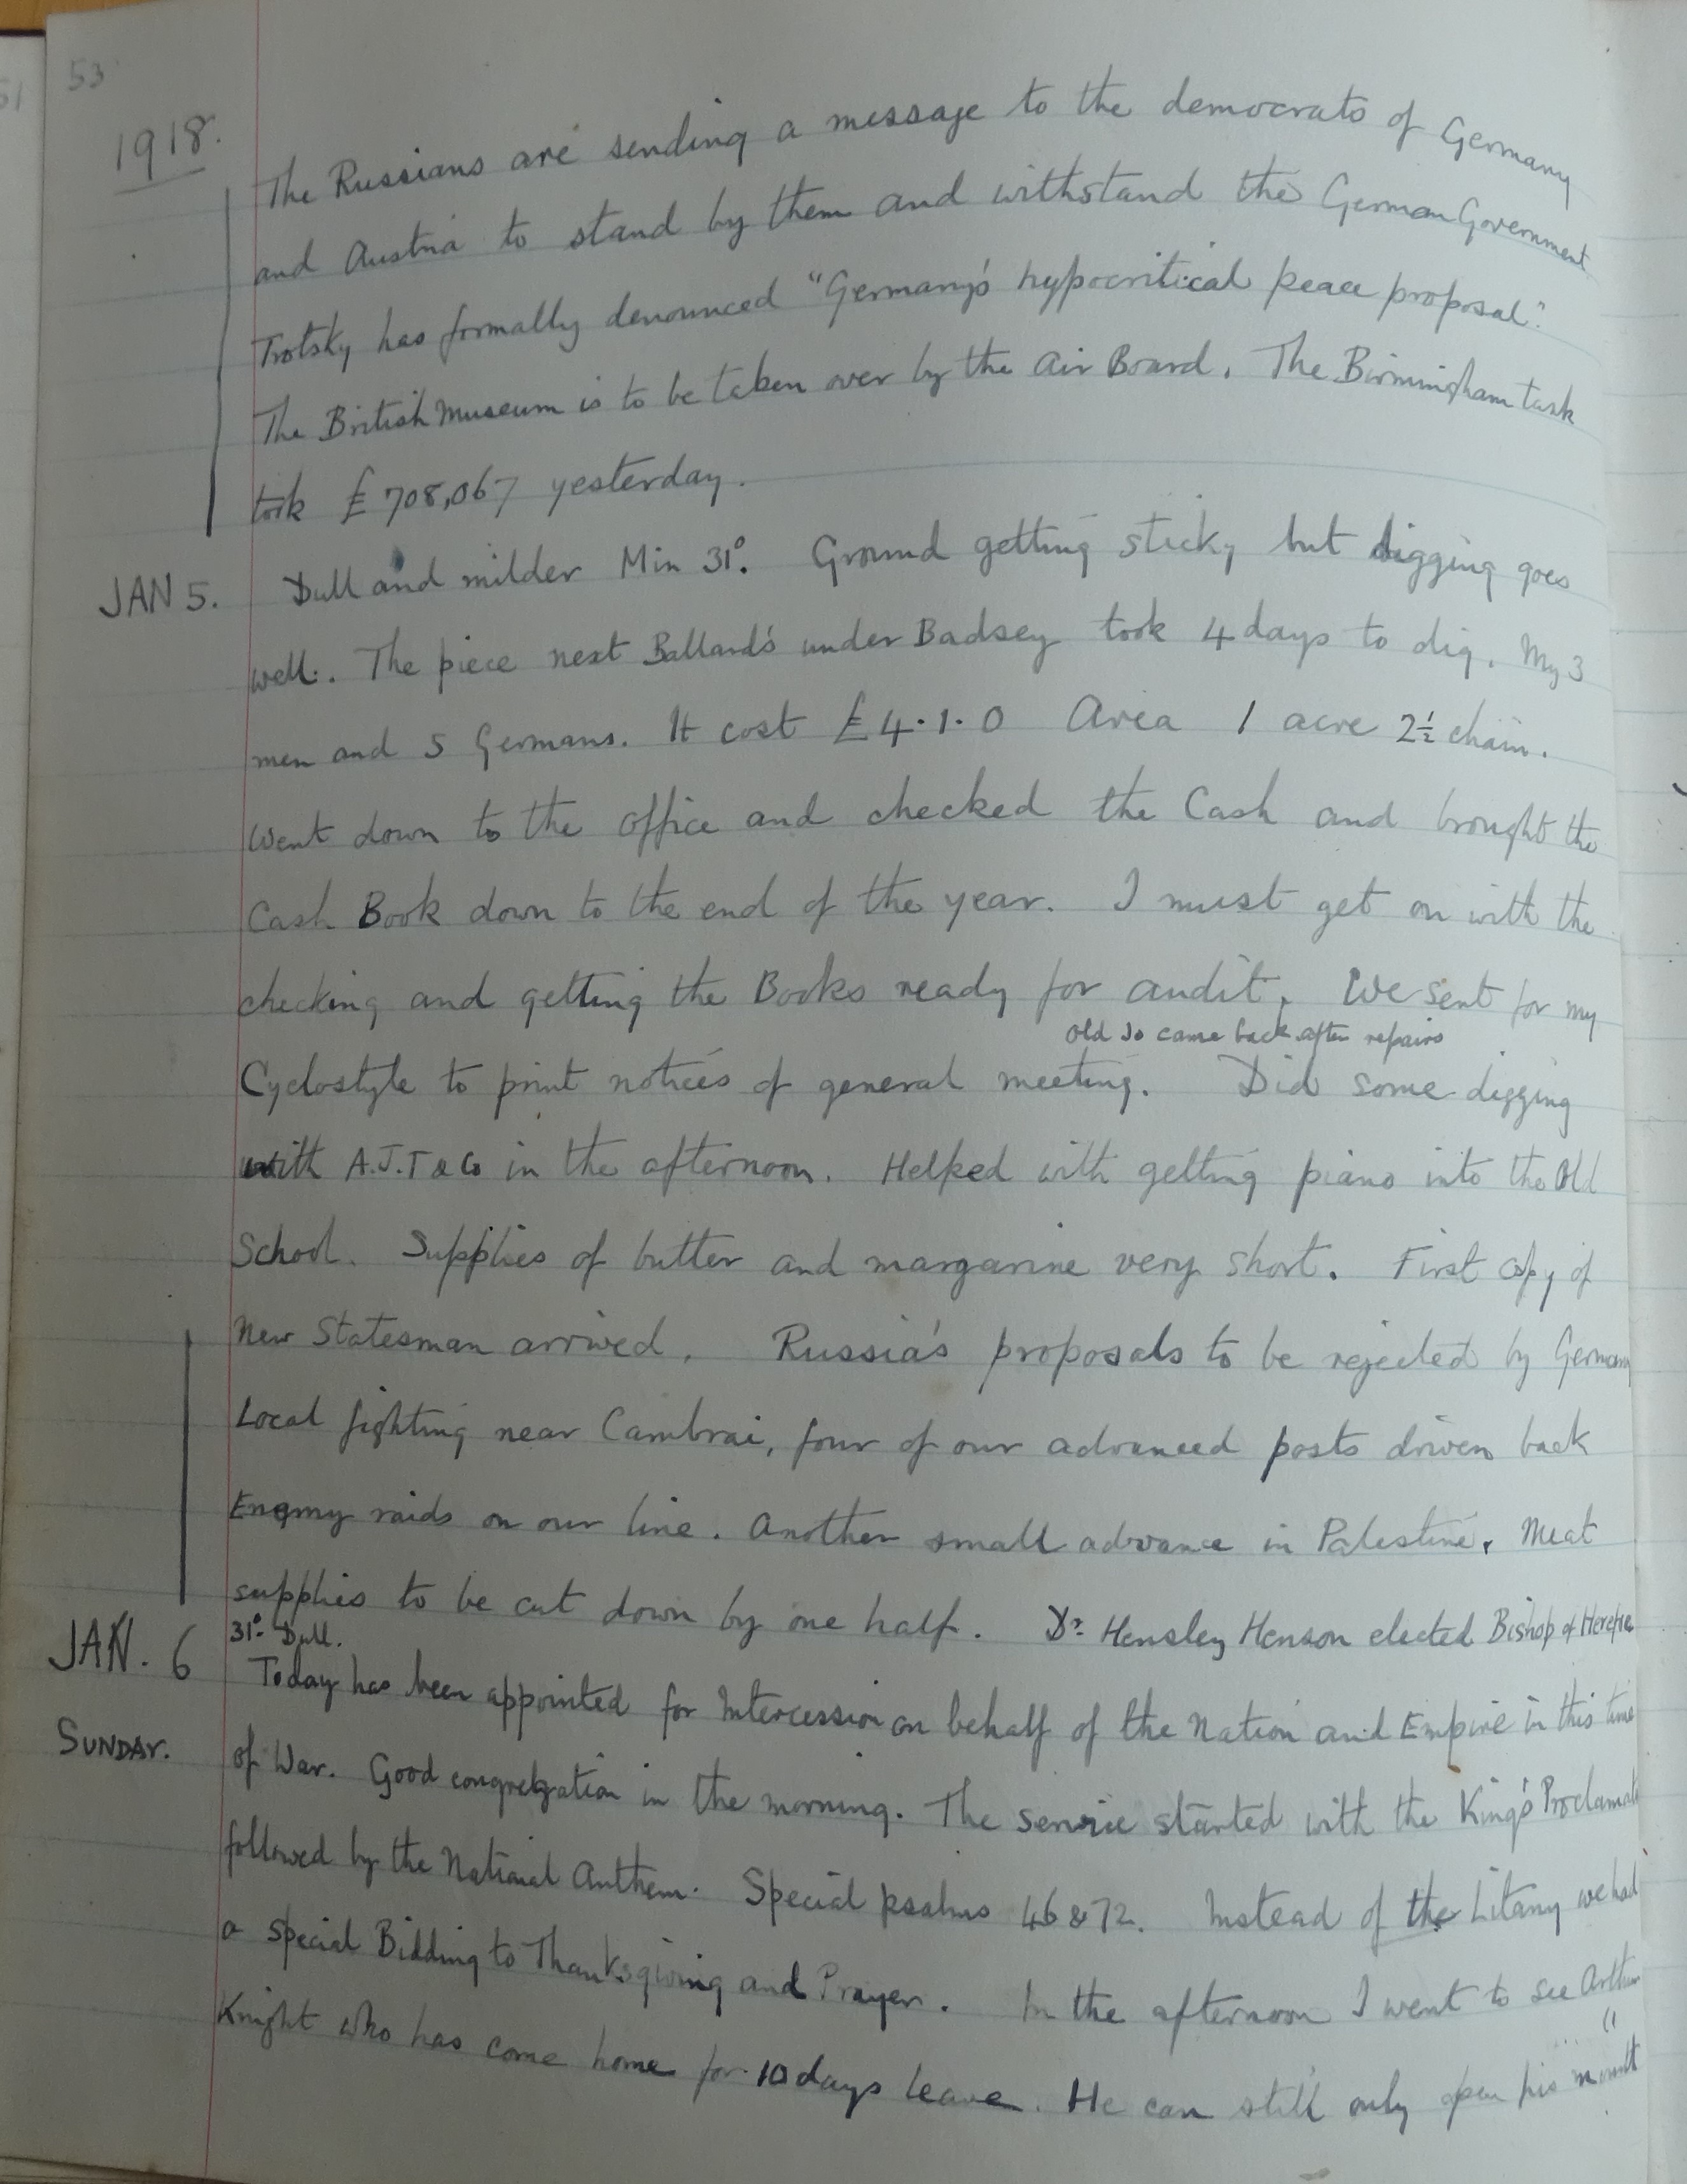 53
1918.
The Russians are sending a message to the democrats of Germany
and Austria to stand by them and withstand the German Government
Trotsky has formally denounced "Germany's hypocritical peace proposal".
The British Museum is to be taken over by the Air Board. The Birmingham tank
took £708,067 yesterday.
JAN 5. Dull and milder Min 31°. Ground getting sticky but digging goes
well. The piece next Ballard's under Badsey took 4 days to dig. My 3
men and 5 Germans. It cost £4.1.0 Area 1 acre 2½ chain.
Went down to the office and checked the Cash and brought the
Cash Book down to the end of the year. I must get on with the
checking and getting the Books ready for audit. We sent for my
Old Jo came back after repairs
Cyclostyle to print notices of general meeting. Did some digging
with A.J.T & Co in the afternoon. Helped with getting piano into the Old
School. Supplies of butter and margarine very short. First copy of
New Statesman arrived. Russia's proposals to be rejected by Germany
Local fighting near Cambrai, four of our advanced posts driven back
Enemy raids on our line. Another small advance in Palestine. Meat
supplies to be cut down by one half. Dr Hensley Henson elected Bishop of
JAN. 6 31° Dull.
Today has been appointed for Intercession on behalf of the Nation and Empire in this time
SUNDAY. of War. Good congregation in the morning. The service started with the King's
followed by the National Anthem. Special psalms 46 & 72. Instead of the Litany we had
a special Bidding to Thanksgiving and Prayer. In the afternoon I went to see Arthur
Knight who has come home for 10 days leave. He can still only open his mouth